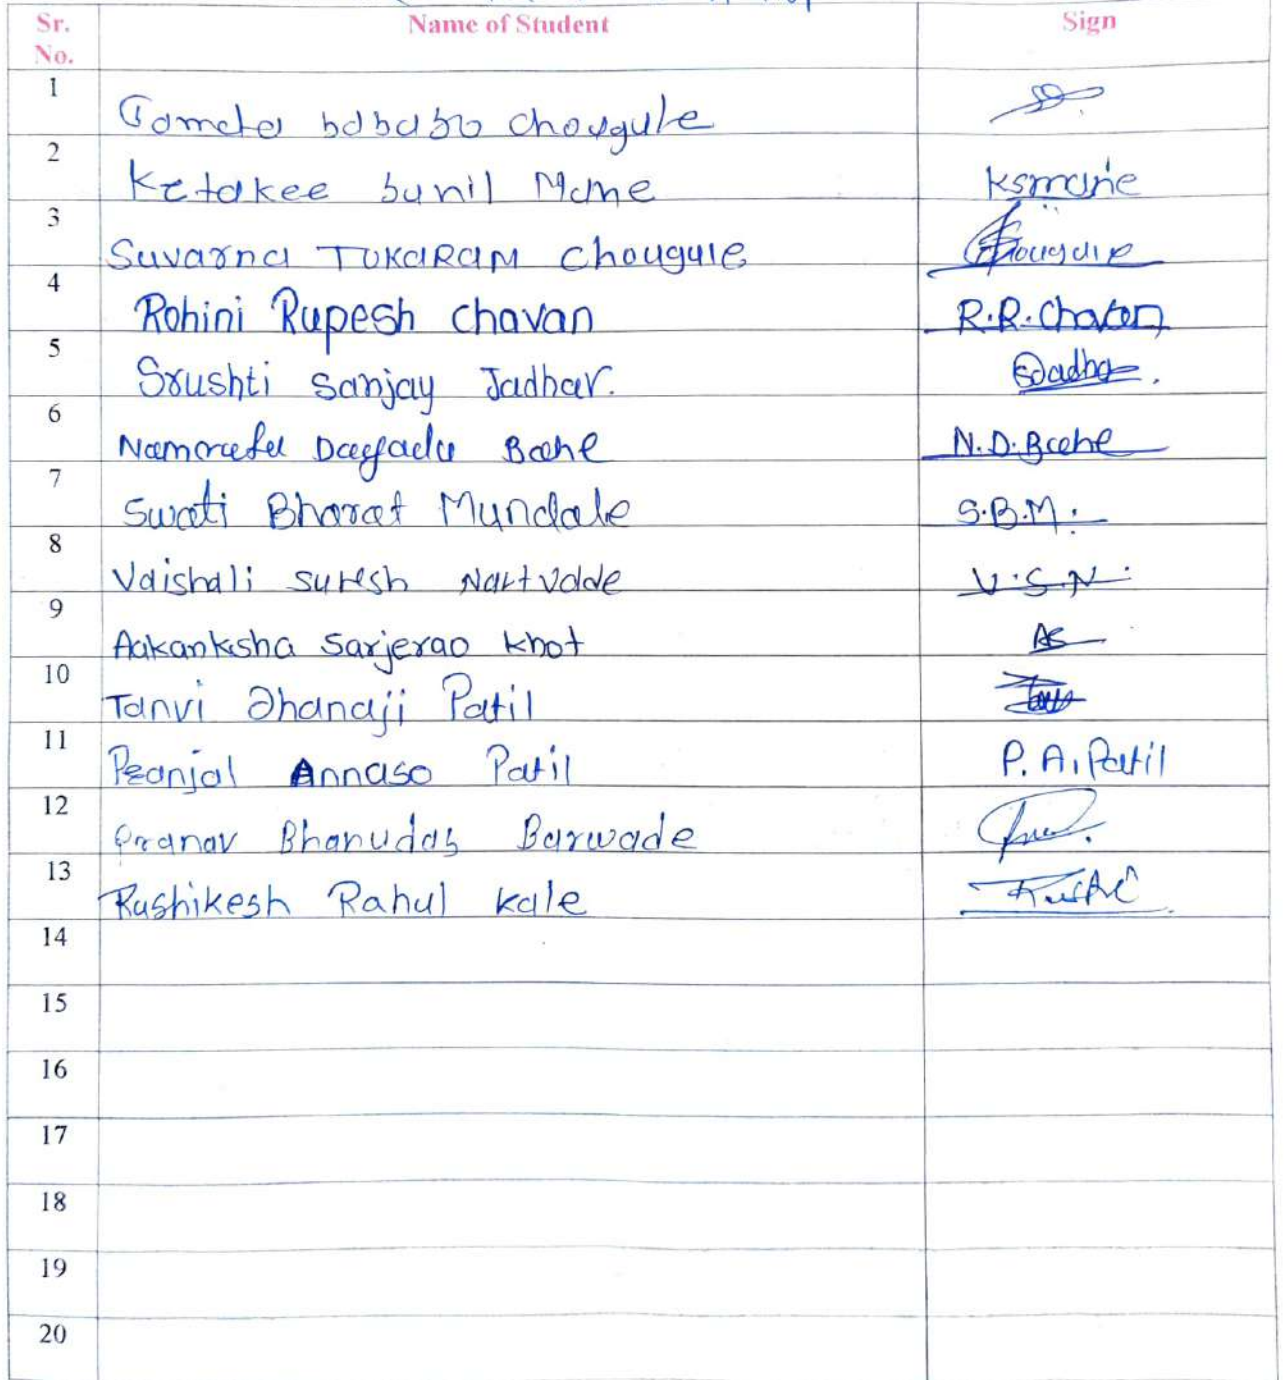 Sr. No. Name of Student Sign
1 bababso Chougule
2 Ketakee Sunil Mane ksmane
3 Suvarna TUKARAM Chougule Chougule
4 Rohini Rupesh Chavan R.R.Chavan
5 Srushti Sanjay Jadhav.
6 Namrata Dagadu Bache N.D.Bache
7 Swati Bharat Mundale S.B.M.
8 Vaishali suresh V.S.N.
9 Aakanksha Sarjerao khot AS
10 Tanvi Dhanaji Patil
11 Pranjal Annaso Patil P. A. Patil
12 Pranav Bhanudas Barwade
13 Rushikesh Rahul kale
14
15
16
17
18
19
20